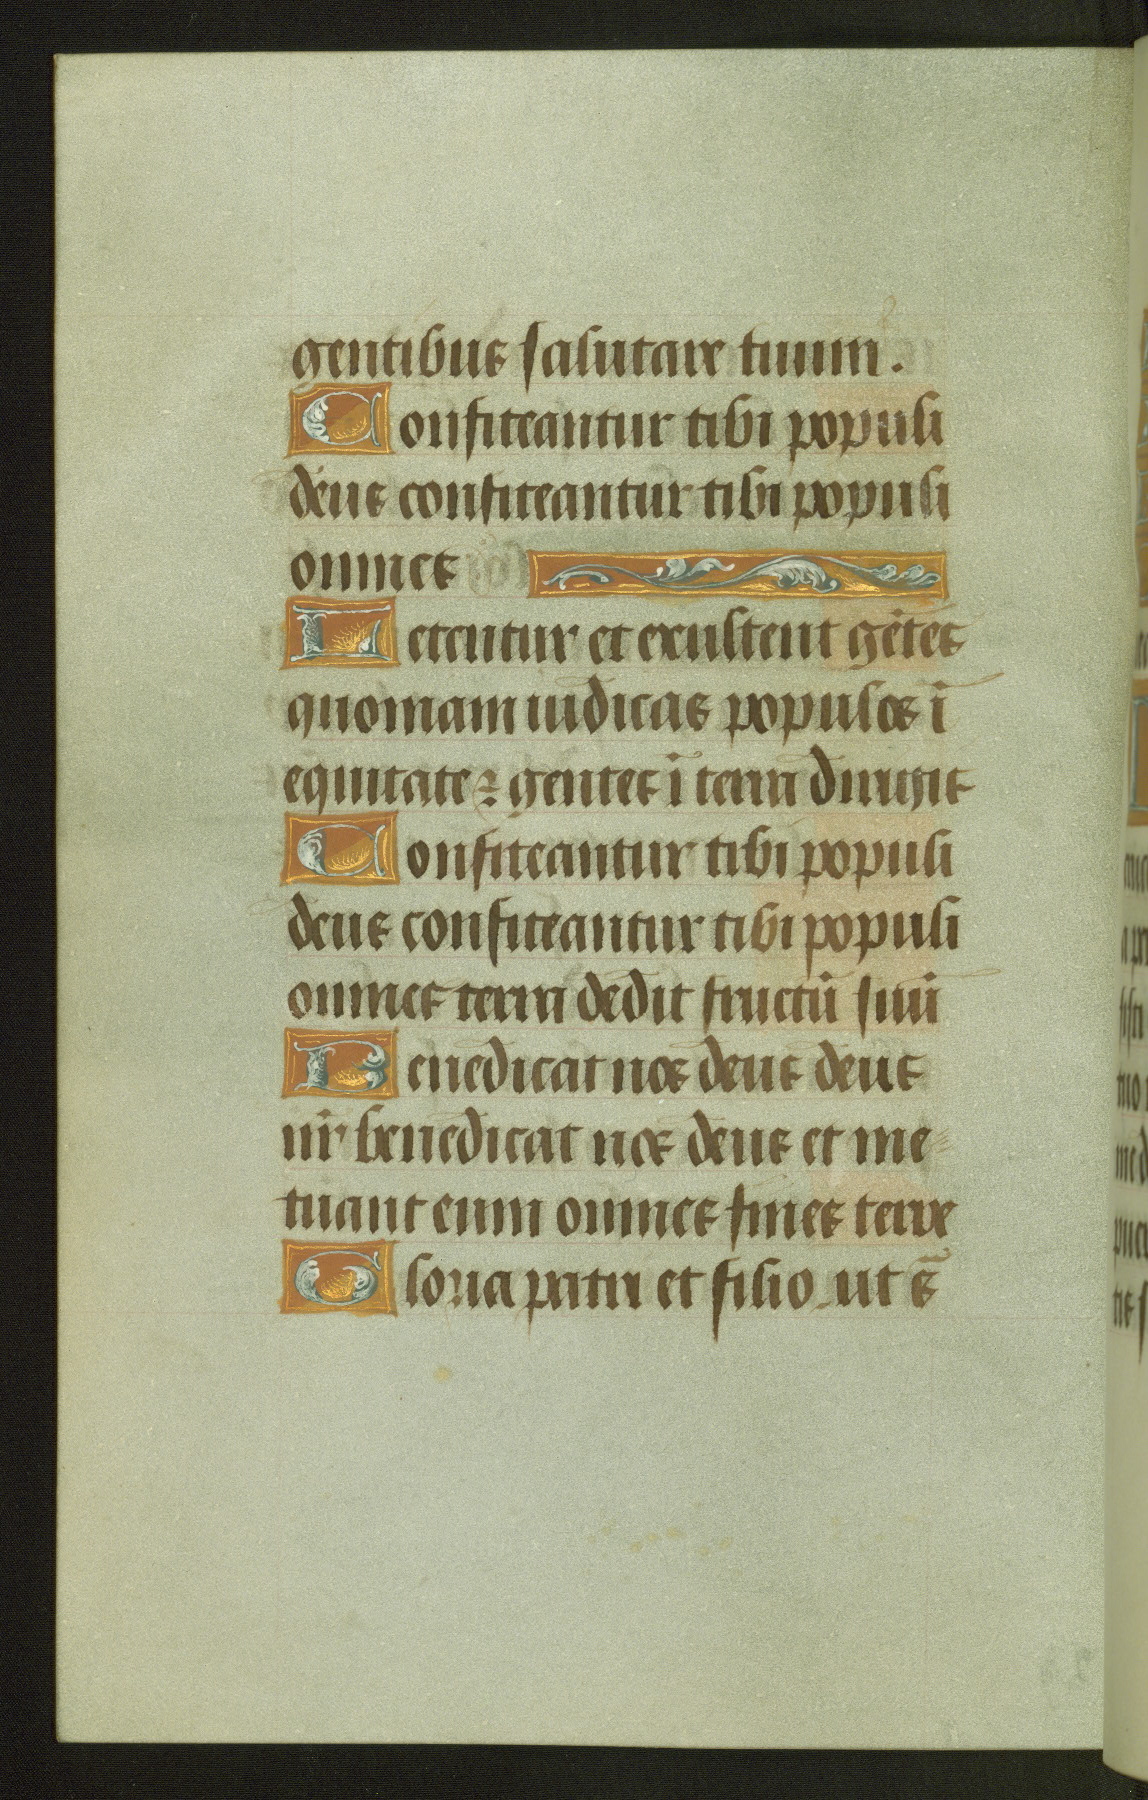 gentibus salutare tuum.
Confiteantur tibi populi
deus confiteantur tibi populi
omnes
Letentur et exultent gētes
quoniam iudicas populos ī
equitate ⁊ gentes ī terra dirigis
Confiteantur tibi populi
deus confiteantur tibi populi
omnes terra dedit fructū suū
Benedicat nos deus deus
nr̄ benedicat nos deus et me
tuant eum omnes fines terre
Gloria patri et filio ut ē